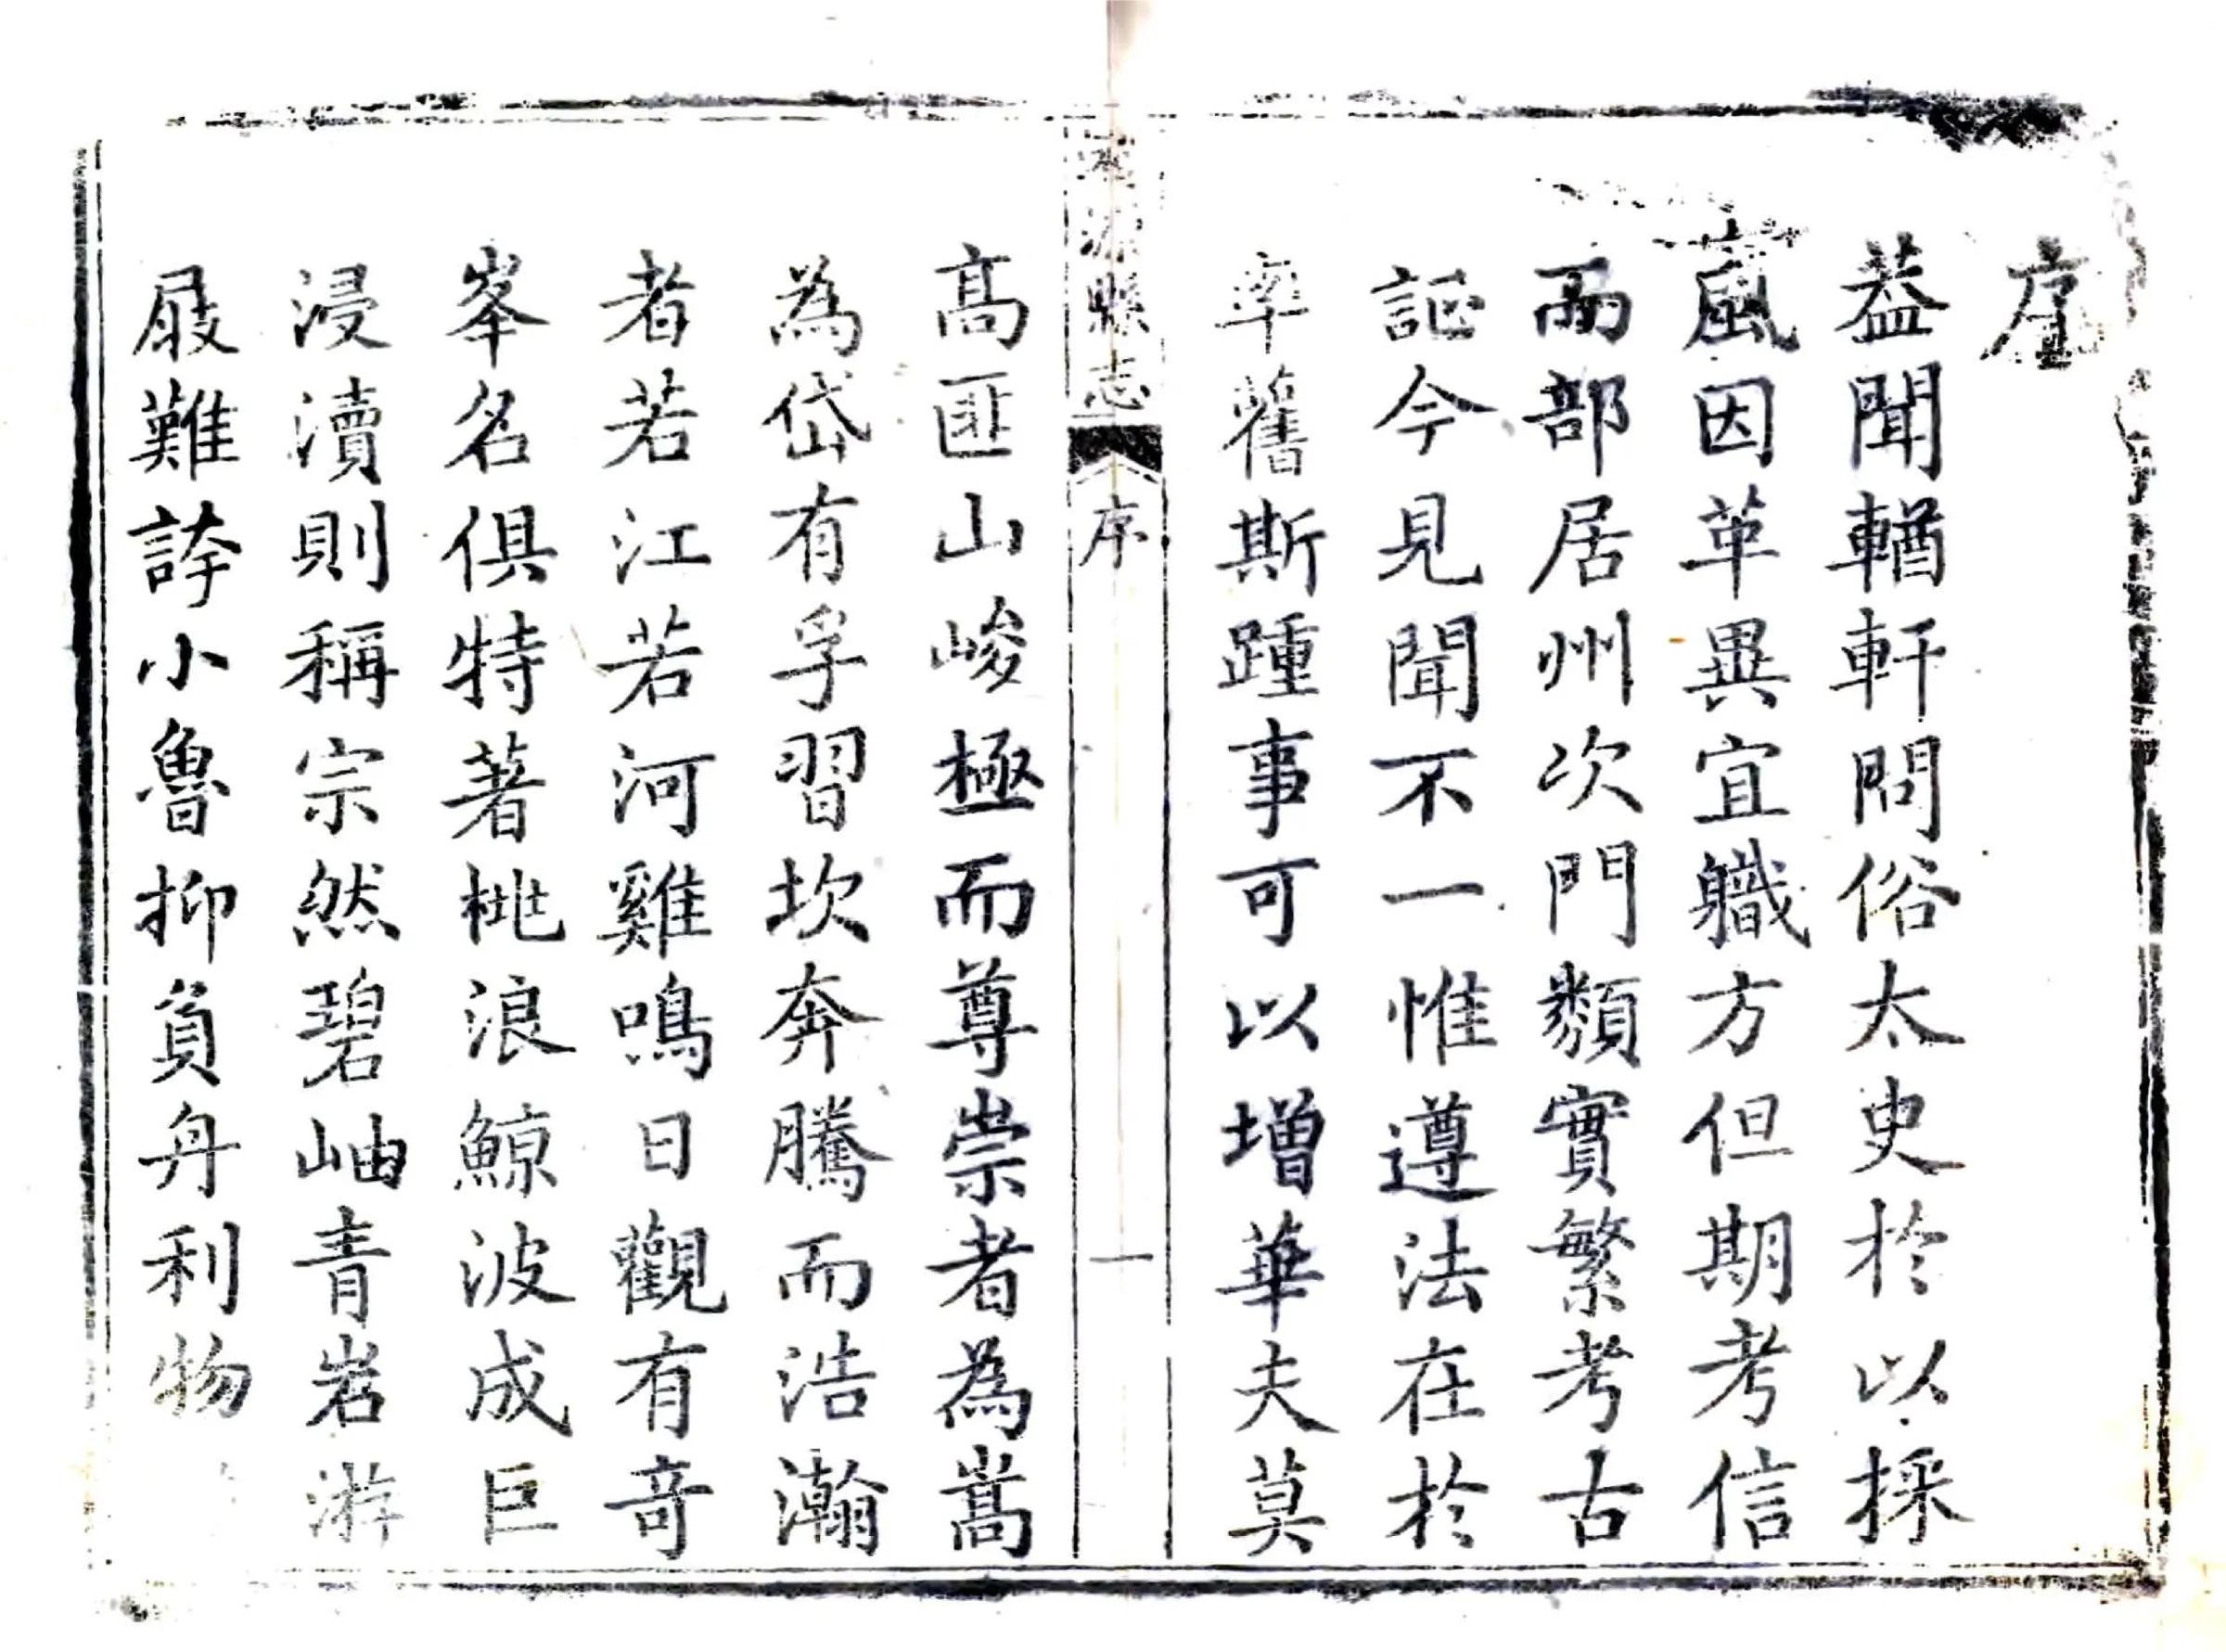 序
葢聞輶軒問俗太史於以採
風因革異宜軄方但期考信
而部居州次門類實繁考古
証今見聞不一惟遵法在於
率舊斯踵事可以增華夫莫
源縣志
序
一
高匪山峻極而尊崇者為嵩
為岱有孚習坎奔騰而浩瀚
者若江若河雞鳴日觀有竒
峯名俱特著桃浪鯨波成巨
浸瀆則稱宗然碧岫青岩游
屐難誇小魯抑負舟利物